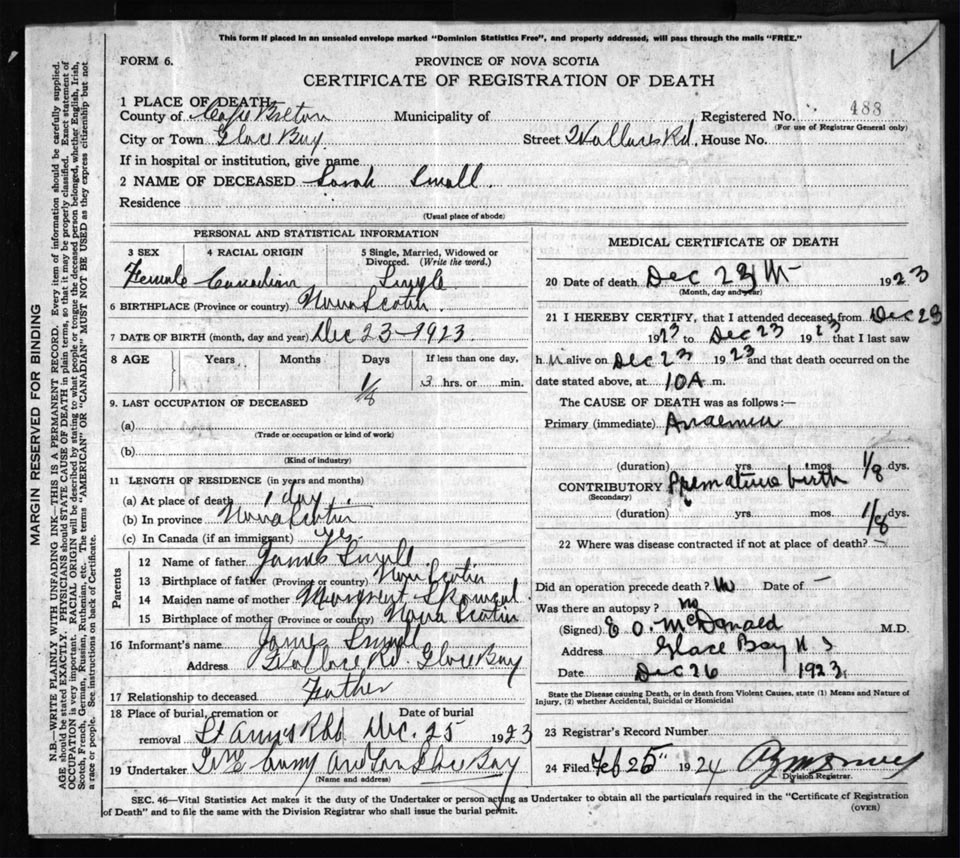 This form if placed in an unsealed envelope marked "Dominion Statistics Free", and properly addressed, will pass through the mails "FREE."
FORM 6.
PROVINCE OF NOVA SCOTIA
CERTIFICATE OF REGISTRATION OF DEATH
1 PLACE OF DEATH
County of Cape Breton Municipality of Registered No. 488
(For use of Registrar General only)
City or Town Glace Bay Street Wallace Rd. House No.
If in hospital or institution, give name
2 NAME OF DECEASED Sarah Small.
Residence
(Usual place of abode)
PERSONAL AND STATISTICAL INFORMATION
3 SEX 4 RACIAL ORIGIN 5 Single, Married, Widowed or Divorced. (Write the word.)
Female Canadian Single
6 BIRTHPLACE (Province or country) Nova Scotia
7 DATE OF BIRTH (month, day and year) Dec 23-1923.
8 AGE Years Months Days If less than one day,
1/8 3 hrs. or min.
9. LAST OCCUPATION OF DECEASED
(a)
(Trade or occupation or kind of work)
(b)
(Kind of industry)
11 LENGTH OF RESIDENCE (in years and months)
(a) At place of death 1 day.
(b) In province Nova Scotia
(c) In Canada (if an immigrant) yes
Parents
12 Name of father James Small
13 Birthplace of father (Province or country) Nova Scotia
14 Maiden name of mother Margaret
15 Birthplace of mother (Province or country) Nova Scotia
16 Informant's name James Small
Address Wallace Rd. Glace Bay
17 Relationship to deceased Father
18 Place of burial, cremation or removal Date of burial
St Annes Dec. 25 1923
19 Undertaker and Son Glace Bay
(Name and address)
MEDICAL CERTIFICATE OF DEATH
20 Date of death Dec 23 1923
(Month, day and year)
21 I HEREBY CERTIFY, that I attended deceased from Dec 23
1923 to Dec 23 1923 that I last saw
h alive on Dec 23 1923 and that death occurred on the
date stated above, at 10A m.
The CAUSE OF DEATH was as follows:—
Primary (immediate) Anaemia
(duration) yrs. mos. 1/8 dys.
CONTRIBUTORY Premature birth
(Secondary)
(duration) yrs. mos. 1/8 dys.
22 Where was disease contracted if not at place of death? —
Did an operation precede death? no Date of —
Was there an autopsy? no
(Signed) E O. McDonald M.D.
Address Glace Bay N. S
Date Dec 26 1923
State the Disease causing Death, or in death from Violent Causes, state (1) Means and Nature of Injury, (2) whether Accidental, Suicidal or Homicidal
23 Registrar's Record Number
24 Filed Feb 25 1924
Division Registrar.
SEC. 46—Vital Statistics Act makes it the duty of the Undertaker or person acting as Undertaker to obtain all the particulars required in the "Certificate of Registration
of Death" and to file the same with the Division Registrar who shall issue the burial permit.
(OVER)
MARGIN RESERVED FOR BINDING
N.B.—WRITE PLAINLY WITH UNFADING INK—THIS IS A PERMANENT RECORD. Every item of information should be carefully supplied.
AGE should be stated EXACTLY. PHYSICIANS should STATE CAUSE OF DEATH in plain terms, so that it may be properly classified. Exact statement of
OCCUPATION is very important. RACIAL ORIGIN will be described by stating to what people or tongue the deceased person belonged, whether English, Irish,
Scotch, French, German, Russian, Ruthenian, etc. The terms "AMERICAN" OR "CANADIAN" MUST NOT BE USED as they express citizenship but not
a race or people. See instructions on back of Certificate.